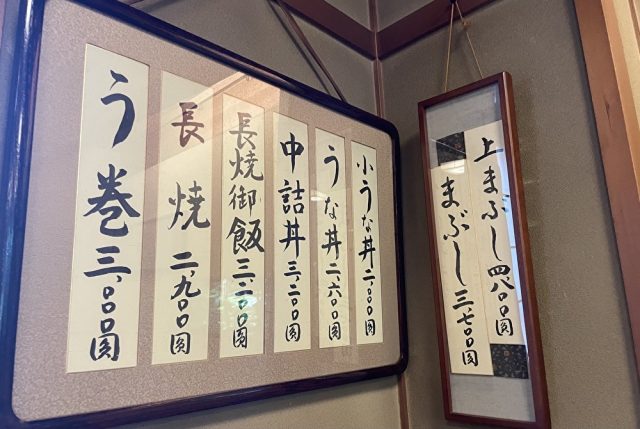 上まぶし四、八〇〇圓
まぶし三、七〇〇圓
小うな丼二、〇〇〇圓
うな丼二、六〇〇圓
中詰丼三、二〇〇圓
長焼御飯三、二〇〇圓
長焼二、九〇〇圓
う巻三、〇〇〇圓